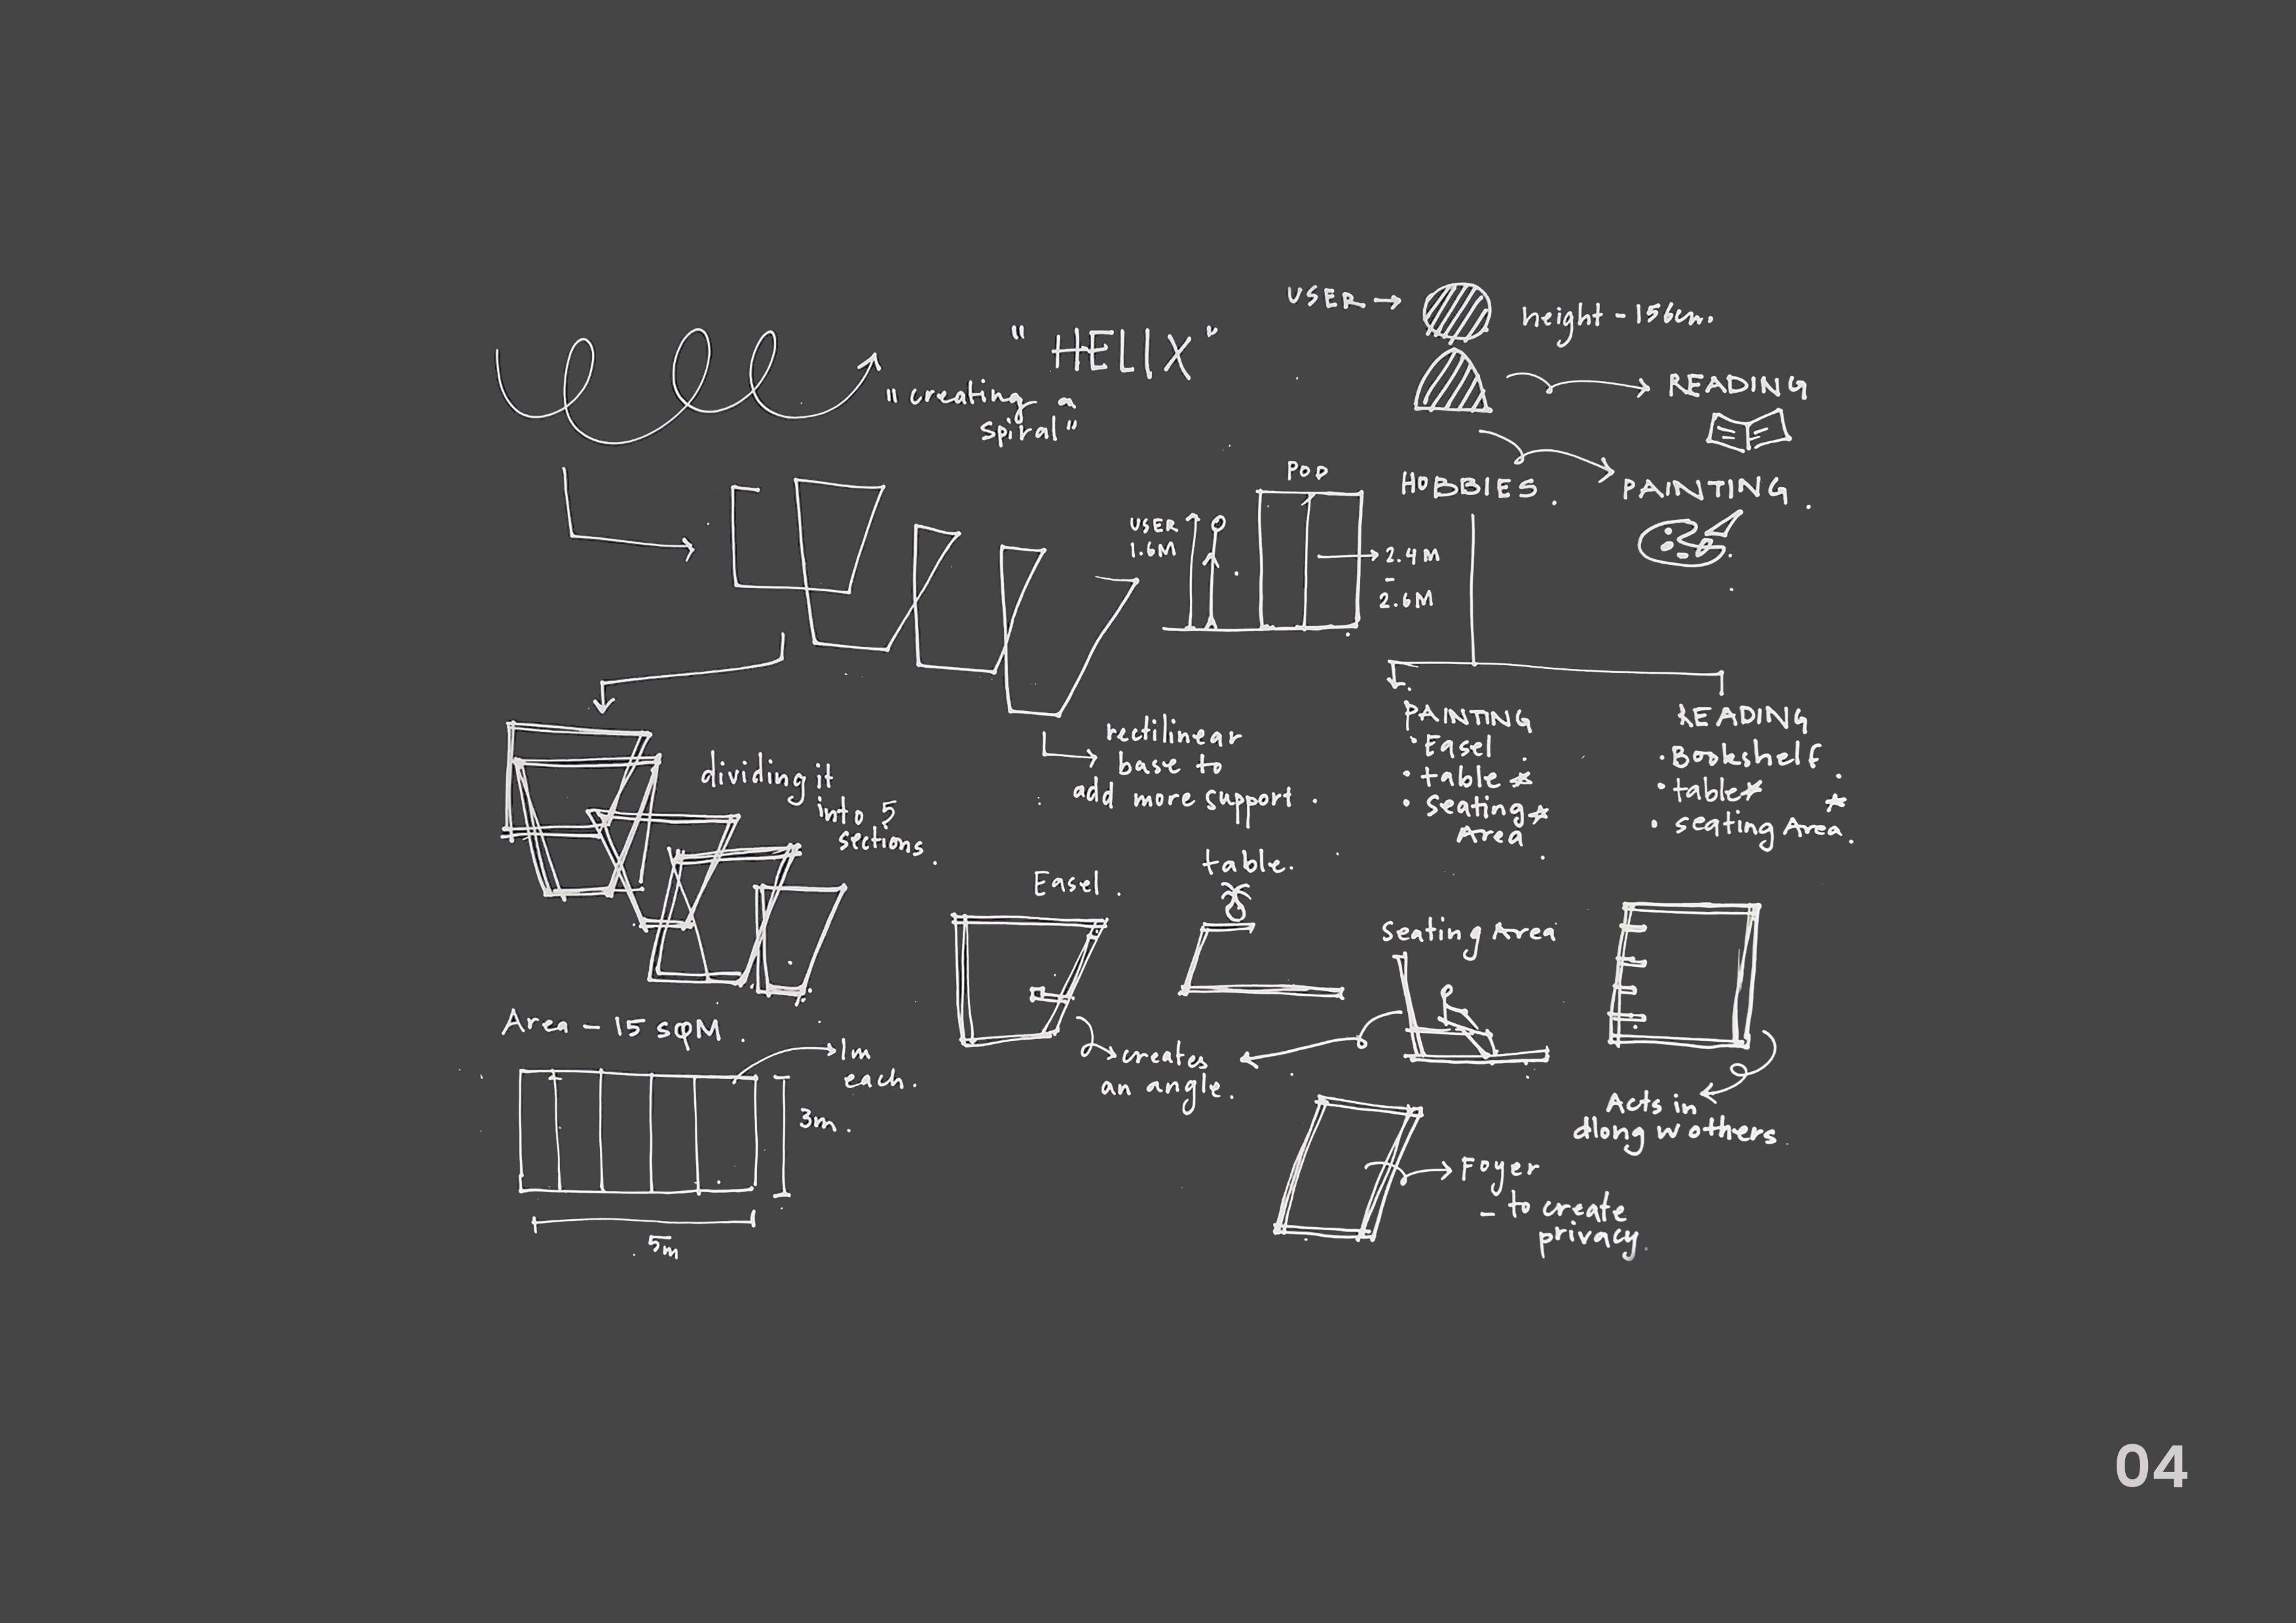 " HELIX "
" creating a
spiral"
USER →
height - 156cm.
READING
HOBBIES.
PAINTING.
POD
USER
1.6M
2.4M
-
2.6M
rectilinear
base to
add more support.
dividing it
into 5
sections.
PAINTING
• Easel
• table ☆
• seating ☆
Area
READING
• Bookshelf
• table ☆
• seating Area. ☆
Easel.
table.
Seating Area
creates
an angle.
Acts in
along w others
Foyer
- to create
privacy.
Area - 15 sqM.
1m
each.
3m.
5m
04